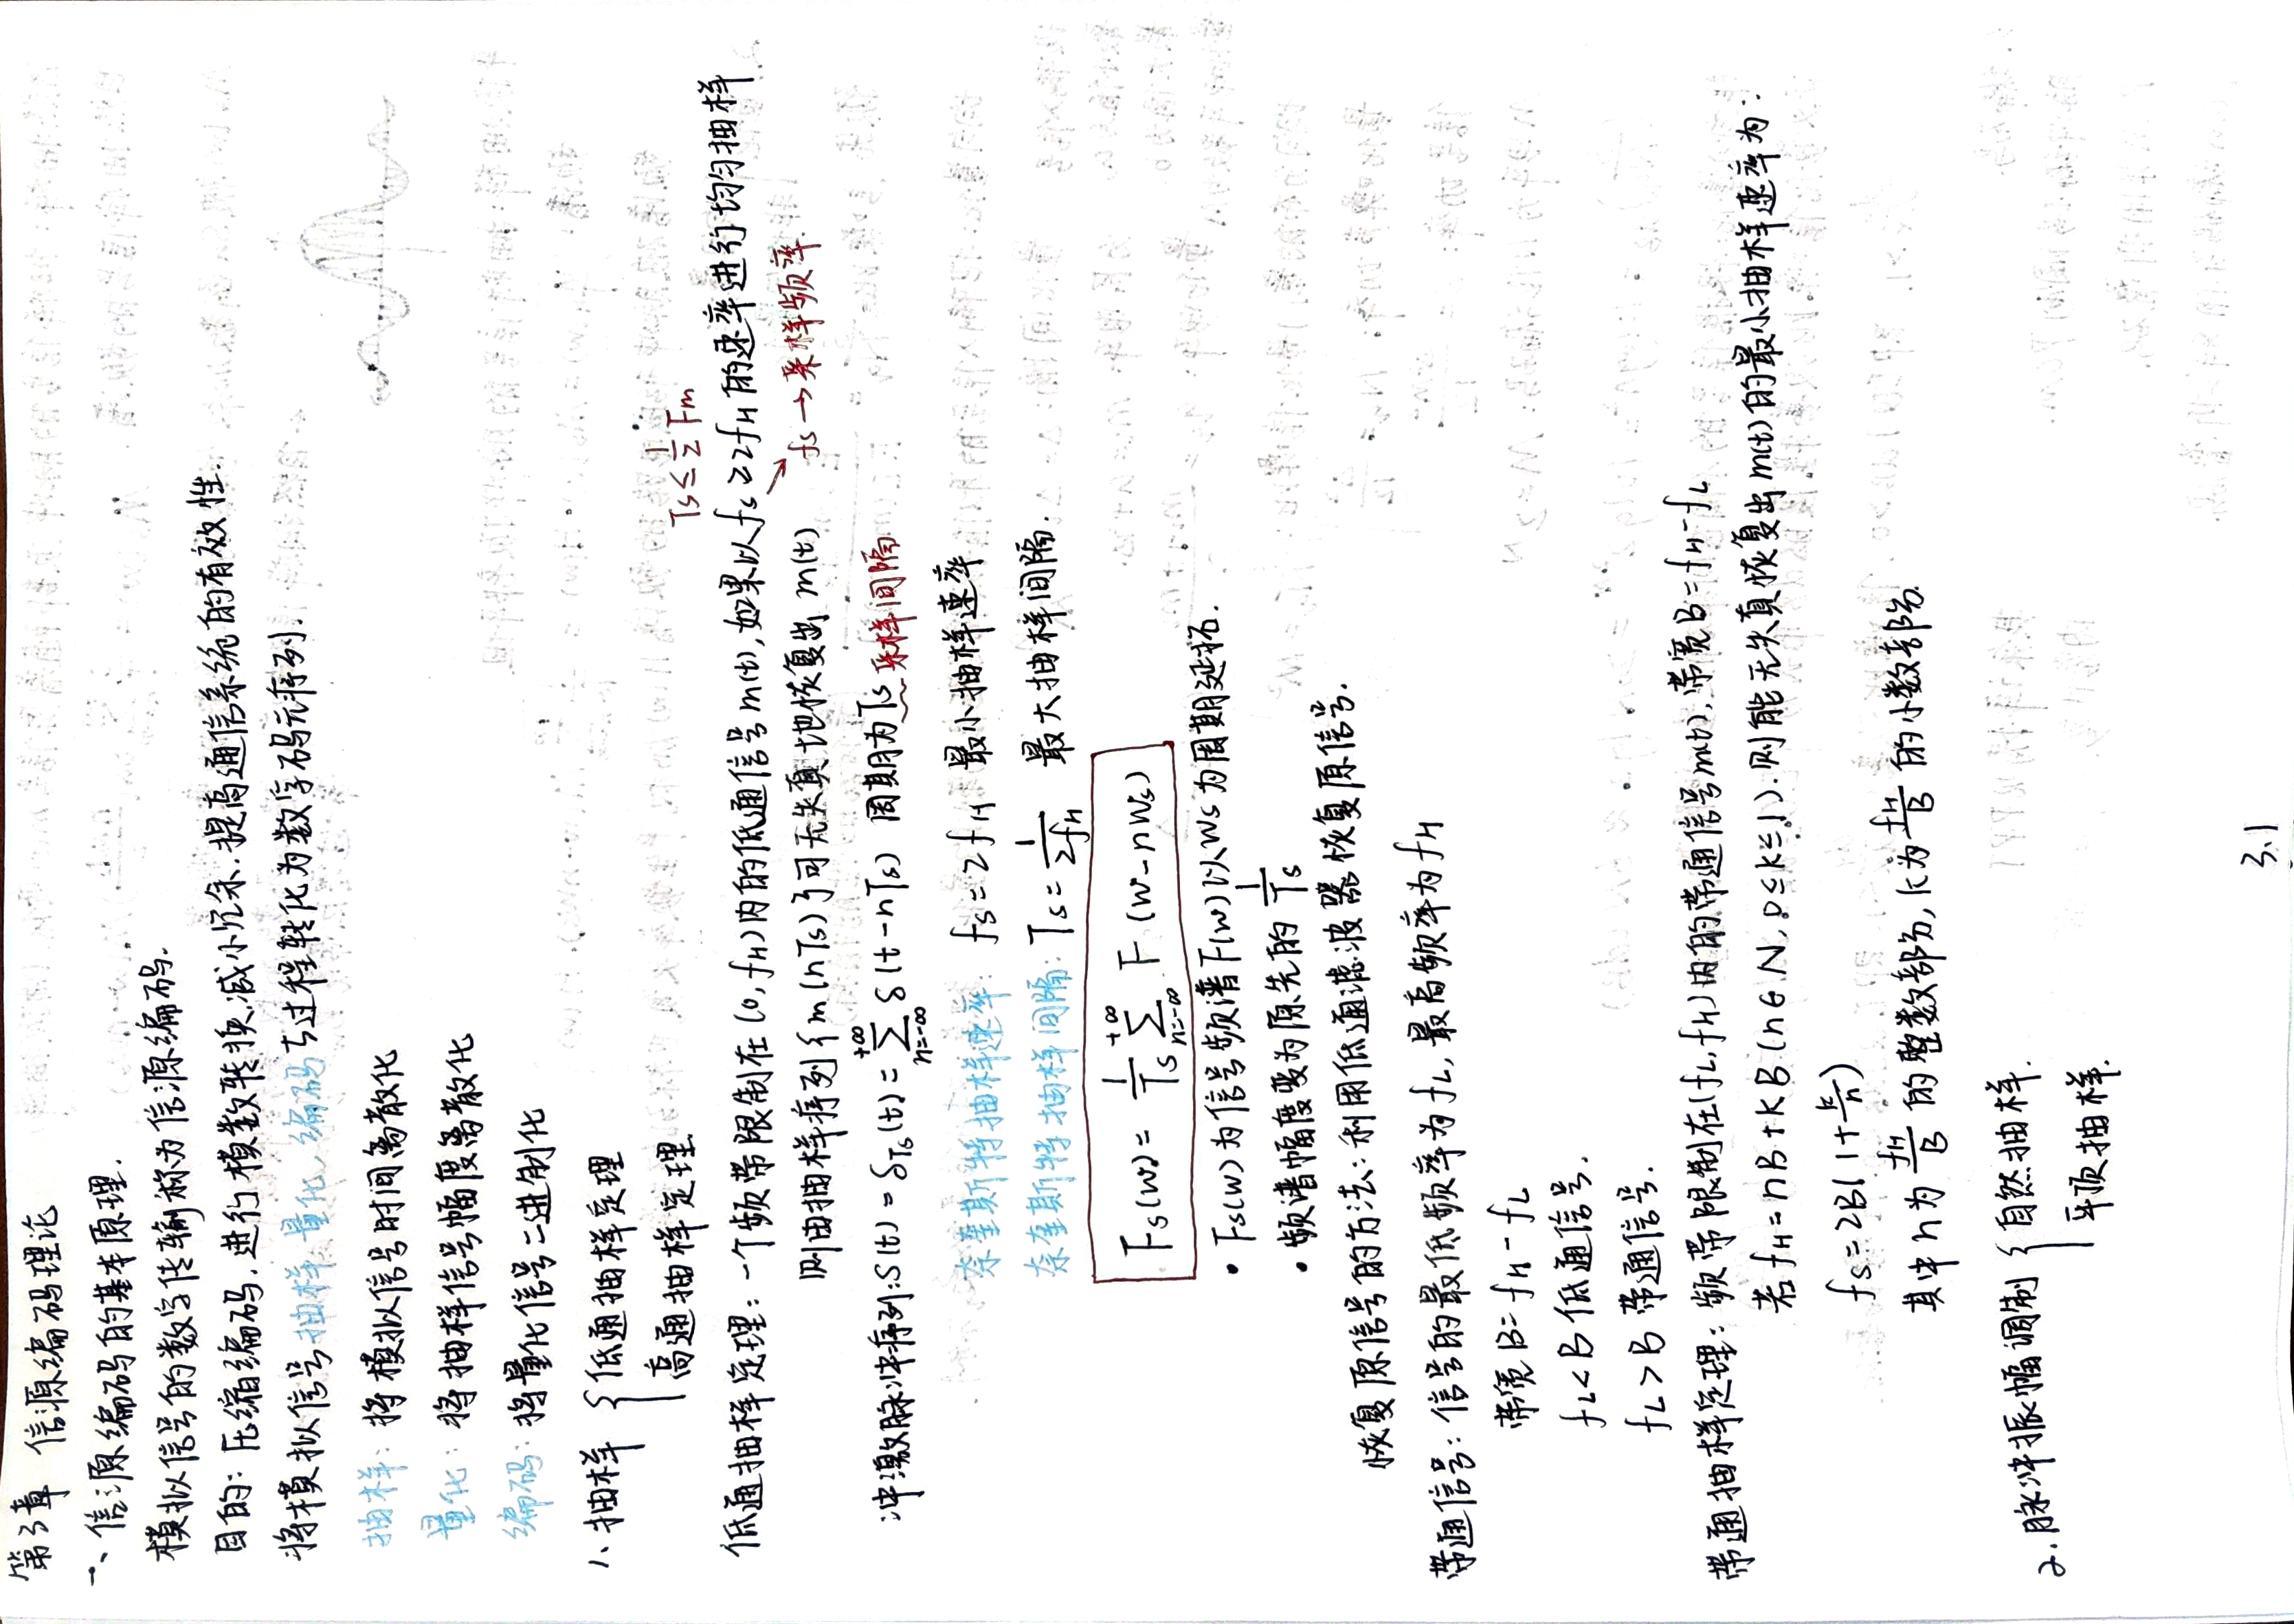 第3章 信源编码理论
一、信源编码的基本原理.
模拟信号的数字传输称为信源编码.
目的：压缩编码，进行模数转换，减小冗余，提高通信系统的有效性.
将模拟信号抽样、量化、编码3过程转化为数字码元序列.
抽样：将模拟信号时间离散化
量化：将抽样信号幅度离散化
编码：将量化信号二进制化
1、抽样 { 低通抽样定理
高通抽样定理
Ts ≤ 1/2 Fm
低通抽样定理：一个频带限制在(0, fH)内的低通信号m(t), 如果以fs ≥ 2fH的速率进行均匀抽样
则由抽样序列{m(nTs)}可无失真地恢复出 m(t)
fs → 采样频率.
冲激脉冲序列: S(t) = δTs(t) = Σ(n=-∞, +∞) δ(t-nTs) 周期为Ts 采样间隔
奈奎斯特抽样速率: fs = 2fH 最小抽样速率
奈奎斯特抽样间隔: Ts = 1/2fH 最大抽样间隔.
Fs(w) = 1/Ts Σ(n=-∞, +∞) F(w-nws)
• Fs(w)为信号频谱F(w)以ws为周期延拓.
• 频谱幅度变为原先的 1/Ts
恢复原信号的方法：利用低通滤波器恢复原信号.
带通信号：信号的最低频率为fL, 最高频率为fH
带宽B = fH - fL
fL < B 低通信号.
fL > B 带通信号.
带通抽样定理：频带限制在(fL, fH)内的带通信号m(t), 带宽B = fH - fL
若fH = nB + kB (n∈N, 0≤k≤1). 则能无失真恢复出m(t)的最小抽样速率为：
fs = 2B(1 + k/n)
其中n为 fH/B 的整数部分, k为 fH/B 的小数部分.
2. 脉冲振幅调制 { 自然抽样.
平顶抽样.
3.1